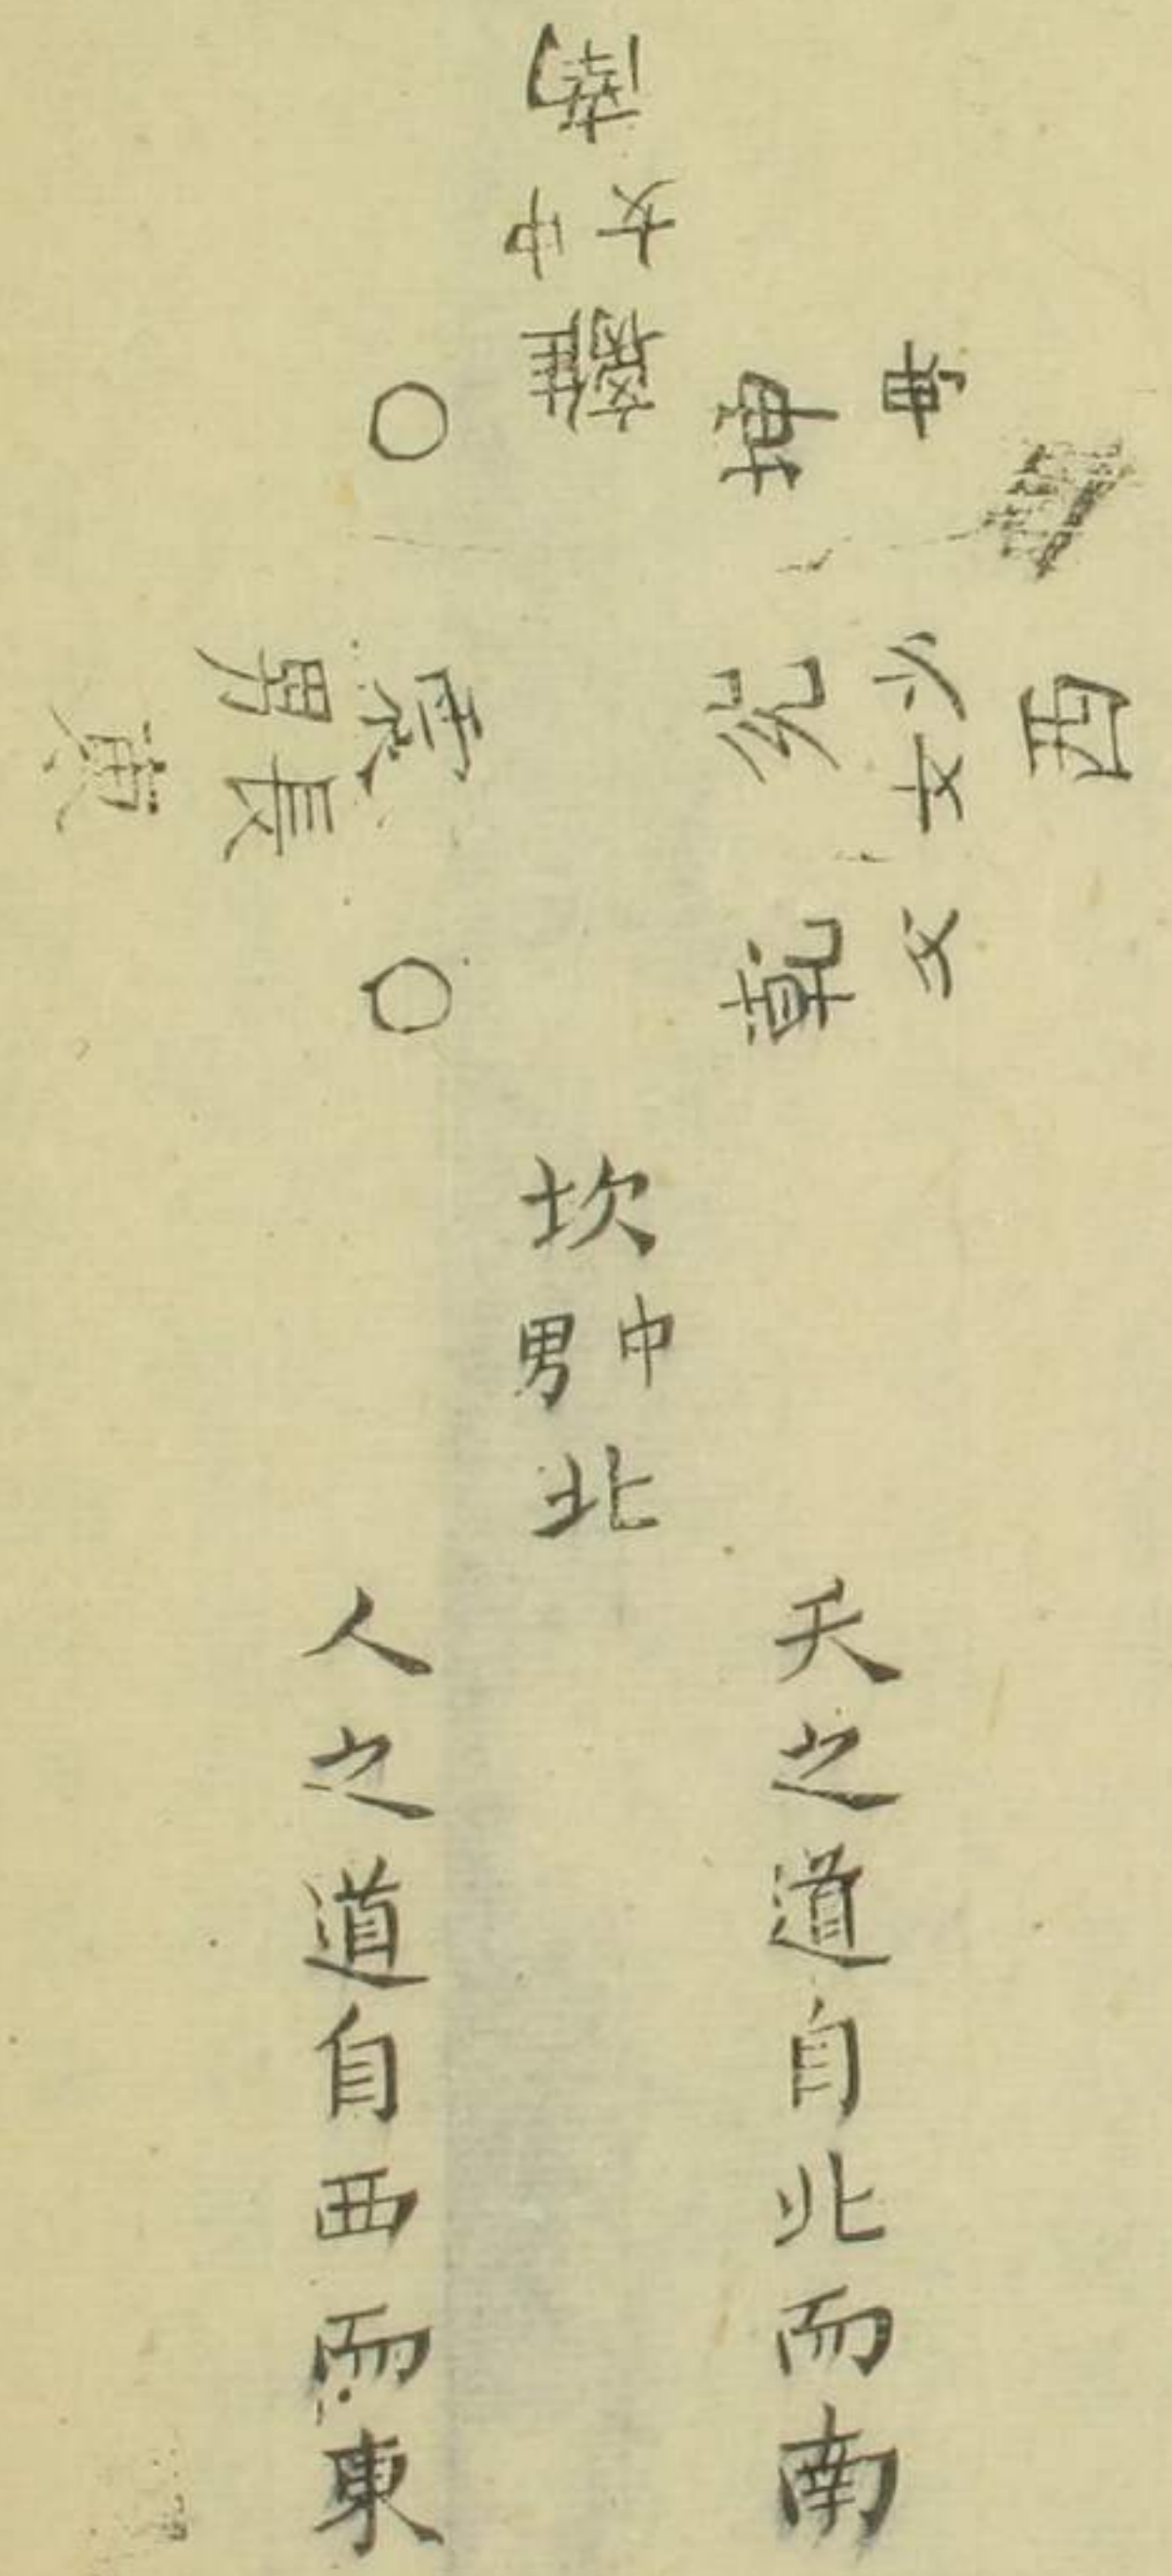 南
中女
離
坤
母
○
兌
少女
西
震
長男
東
乾
父
○
坎
中男
北
天之道自北而南
人之道自西而東